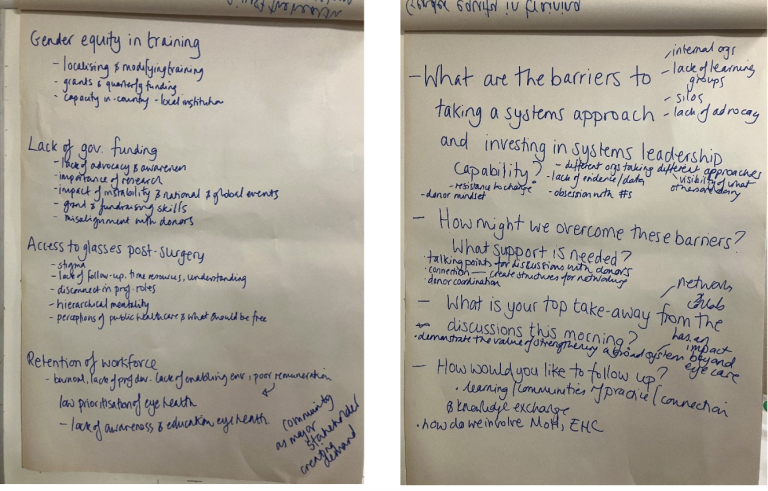 Gender equity in training
- localising & modifying training
- grants & quarterly funding
- capacity in-country - local institution
Lack of gov. funding
- lack of advocacy & awareness
- importance of research
- impact of instability & national & global events
- grant & fundraising skills
- misalignment with donors
Access to glasses post-surgery
- stigma
- lack of follow-up, time resources, understanding
- disconnect in prof. roles
- hierarchical mentality
- perceptions of public healthcare & what should be free
Retention of workforce
- burnout, lack of prof dev. lack of enabling env, poor remuneration
low prioritisation of eye health
- lack of awareness & education eye health
community
as major
stakeholder
creating
demand
- What are the barriers to
taking a systems approach
and investing in systems leadership
capability?
- internal orgs
- lack of learning
groups
- silos
- lack of advocacy
- different orgs taking different approaches
- lack of evidence/data
- visibility of what
others are doing
- resistance to change
- obsession with #s
- donor mindset
- How might we overcome these barriers?
What support is needed?
• talking points for discussions with donors
• connection — create structures for networking
• donor coordination
- What is your top take-away from the
discussions this morning?
network
• demonstrate the value of strengthening a broad system
has an
impact
beyond
eye care
- How would you like to follow up?
• learning/communities of practice/connection
& knowledge exchange
• how do we involve MoH, EHC